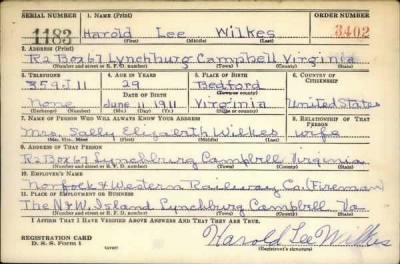 SERIAL NUMBER 1. NAME (Print) ORDER NUMBER
1183 Harold Lee Wilkes 3402
(First) (Middle) (Last)
2. ADDRESS (Print)
R2 Box 67 Lynchburg Campbell Virginia
(Number and street or R. F. D. number) (Town) (County) (State)
3. TELEPHONE 4. AGE IN YEARS 5. PLACE OF BIRTH 6. COUNTRY OF CITIZENSHIP
359J11 29 Bedford
DATE OF BIRTH (Town or county)
None June 11 1911 Virginia United States
(Exchange) (Number) (Mo.) (Day) (Yr.) (State or country)
7. NAME OF PERSON WHO WILL ALWAYS KNOW YOUR ADDRESS 8. RELATIONSHIP OF THAT PERSON
Mrs. Sally Elizabeth Wilkes wife
(Mr., Mrs., Miss) (First) (Middle) (Last)
9. ADDRESS OF THAT PERSON
R2 Box 67 Lynchburg Campbell Virginia
(Number and street or R. F. D. number) (Town) (County) (State)
10. EMPLOYER'S NAME
Norfolk & Western Railway Co. (Fireman)
11. PLACE OF EMPLOYMENT OR BUSINESS
The N&W. Island Lynchburg Campbell Va
(Number and street or R. F. D. number) (Town) (County) (State)
I AFFIRM THAT I HAVE VERIFIED ABOVE ANSWERS AND THAT THEY ARE TRUE.
REGISTRATION CARD
D. S. S. Form 1
Harold Lee Wilkes
(Registrant's signature)